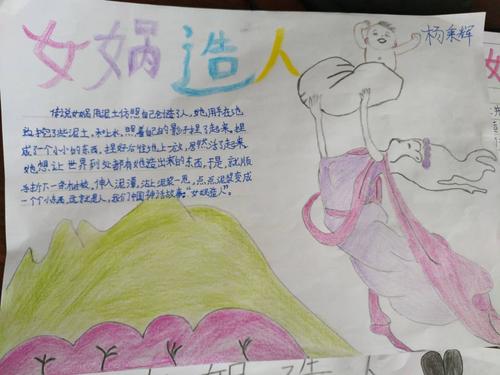 女娲造人
杨秉辉
传说女娲用泥土仿照自己创造了人,她用手在池
边挖了些泥土,和上水,照着自己的影子捏了起来,捏
成了一个小小的东西,捏好后往地上一放,居然活了起来
她想让世界到处都有她造出来的东西,于是,就从
手折下一条枝藤,伸入泥潭,沾上泥浆一甩,点点泥浆变成
一个个小东西,这就是人,我们中国神话故事:"女娲造人"。
娲 造 人